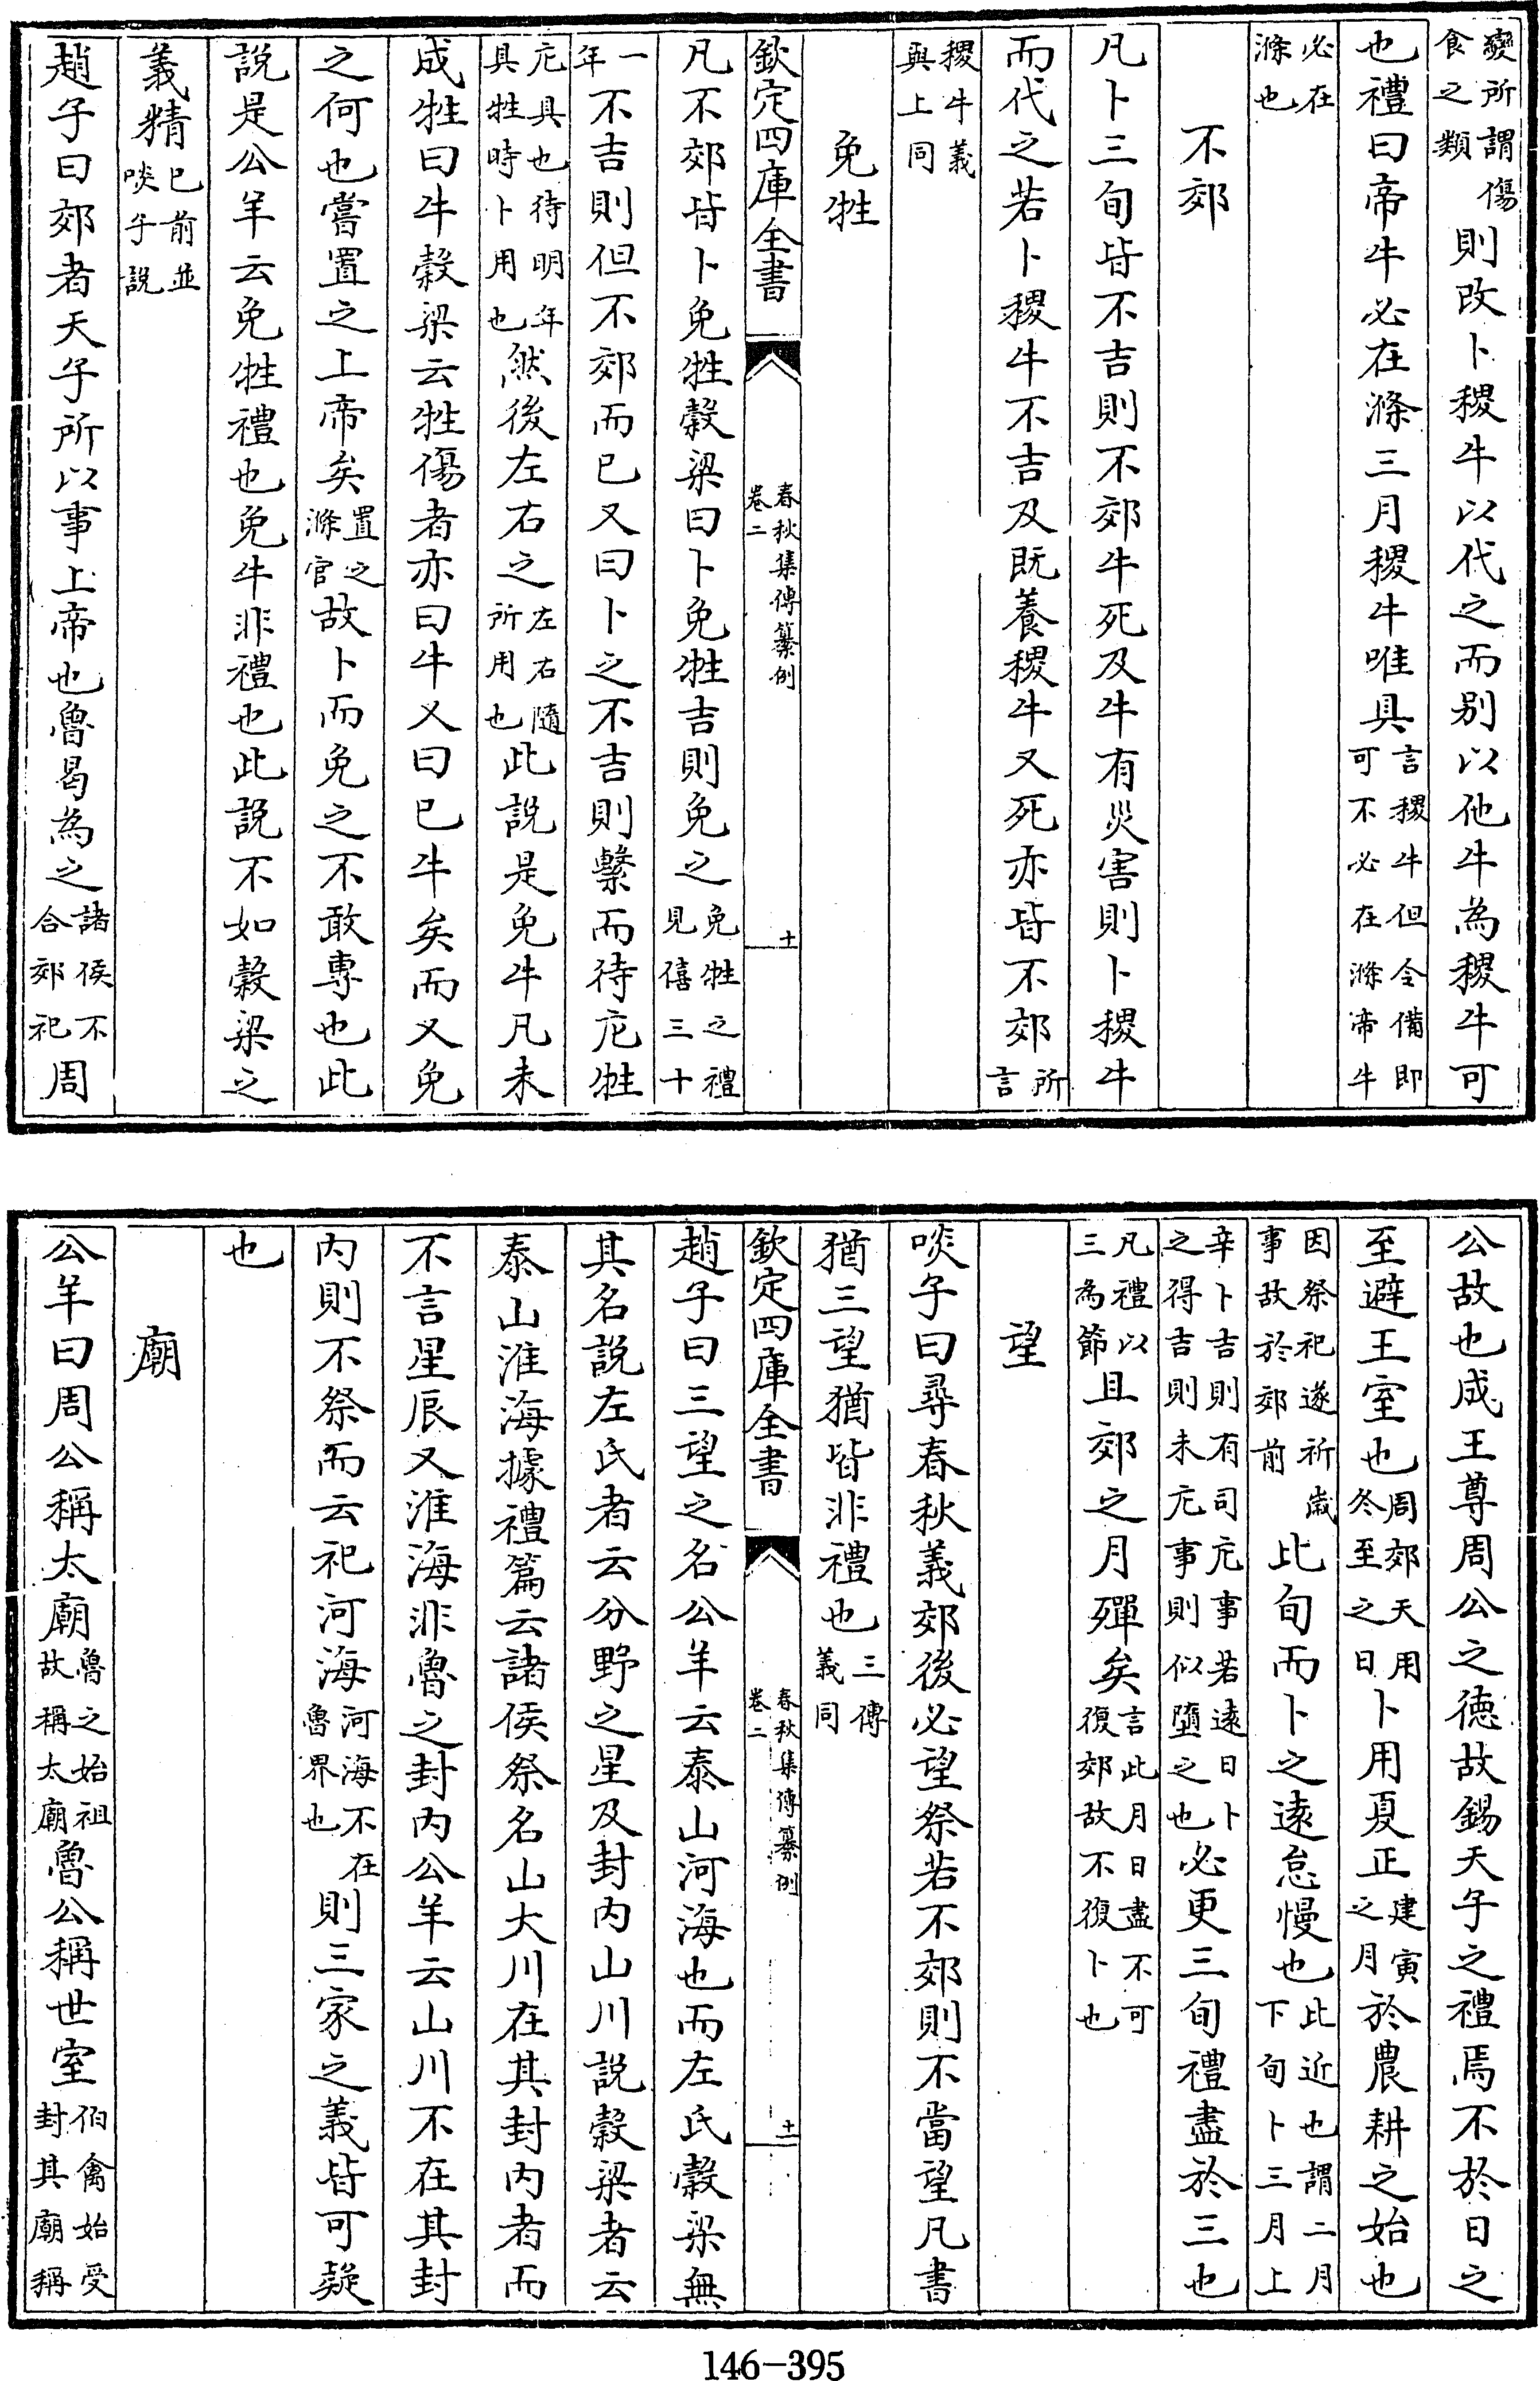 變所謂傷食之類則改卜稷牛以代之而别以他牛為稷牛可
也禮曰帝牛必在滌三月稷牛唯具言稷牛但令備即可不必在滌帝牛
必在滌也
不郊
凡卜三旬皆不吉則不郊牛死及牛有災害則卜稷牛
而代之若卜稷牛不吉及既養稷牛又死亦皆不郊所言
稷牛義與上同
免牲
欽定四庫全書 春秋集傳纂例卷二 十
凡不郊皆卜免牲穀梁曰卜免牲吉則免之免牲之禮見僖三十
一年不吉則但不郊而已又曰卜之不吉則繫而待庀牲
庀具也待明年具牲時卜用也然後左右之左右隨所用也此説是免牛凡未
成牲曰牛穀梁云牲傷者亦曰牛又曰已牛矣而又免
之何也嘗置之上帝矣置之滌官故卜而免之不敢專也此
説是公羊云免牲禮也免牛非禮也此説不如穀梁之
義精已前並啖子説
趙子曰郊者天子所以事上帝也魯曷為之諸侯不合郊祀周
公故也成王尊周公之徳故錫天子之禮焉不於日之
至避王室也周郊天用冬至之日卜用夏正建寅之月於農耕之始也
因祭祀遂祈歳事故於郊前此旬而卜之逺怠慢也此近也謂二月下旬卜三月上
辛卜吉則有司庀事若逺日卜之得吉則未庀事則似墮之也必更三旬禮盡於三也
凡禮以三為節且郊之月殫矣言此月日盡不可復郊故不復卜也
望
啖子曰尋春秋義郊後必望祭若不郊則不當望凡書
猶三望猶皆非禮也三傳義同
欽定四庫全書 春秋集傳纂例卷二 十一
趙子曰三望之名公羊云泰山河海也而左氏穀梁無
其名説左氏者云分野之星及封内山川説穀梁者云
泰山淮海據禮篇云諸侯祭名山大川在其封内者而
不言星辰又淮海非魯之封内公羊云山川不在其封
内則不祭而云祀河海河海不在魯界也則三家之義皆可疑
也
廟
公羊曰周公稱太廟魯之始祖故稱太廟魯公稱世室伯禽始受封其廟稱
146-395